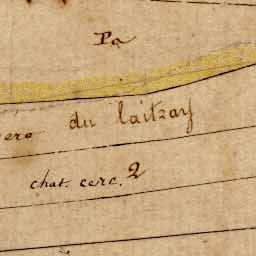 Pa
du laitzay
ero
chat. cerc. 2